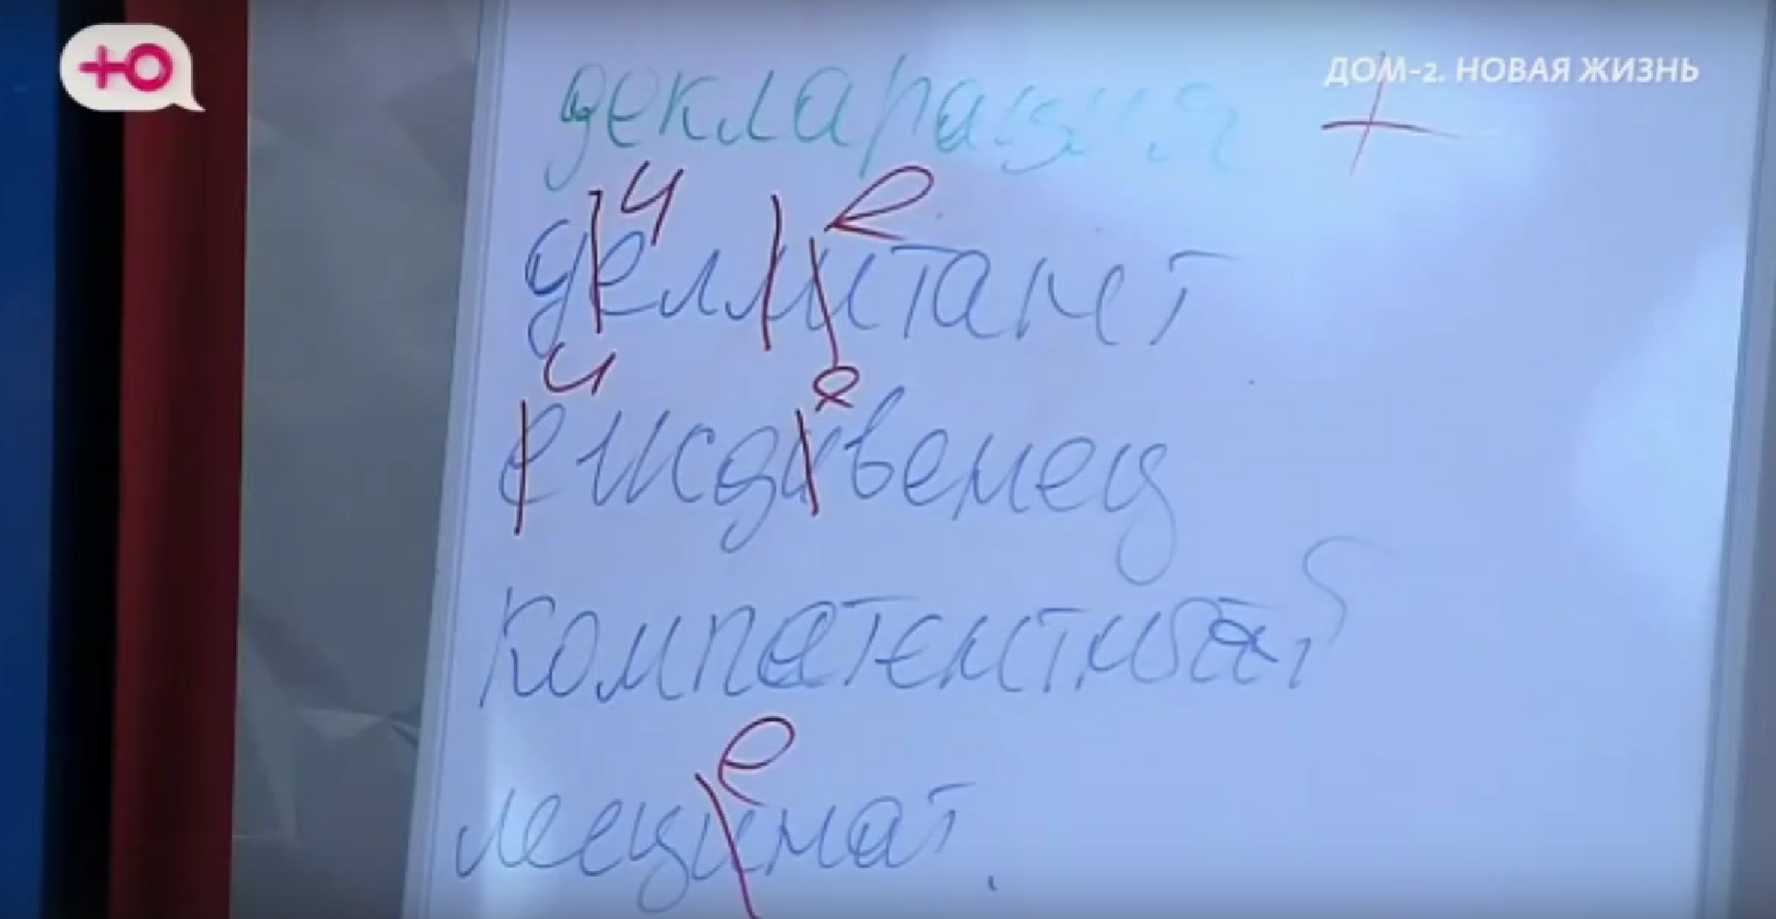 Ю
ДОМ-2. НОВАЯ ЖИЗНЬ
декларация +
и е
деллитант
и е
еждивенец
компетентный
е
меценат